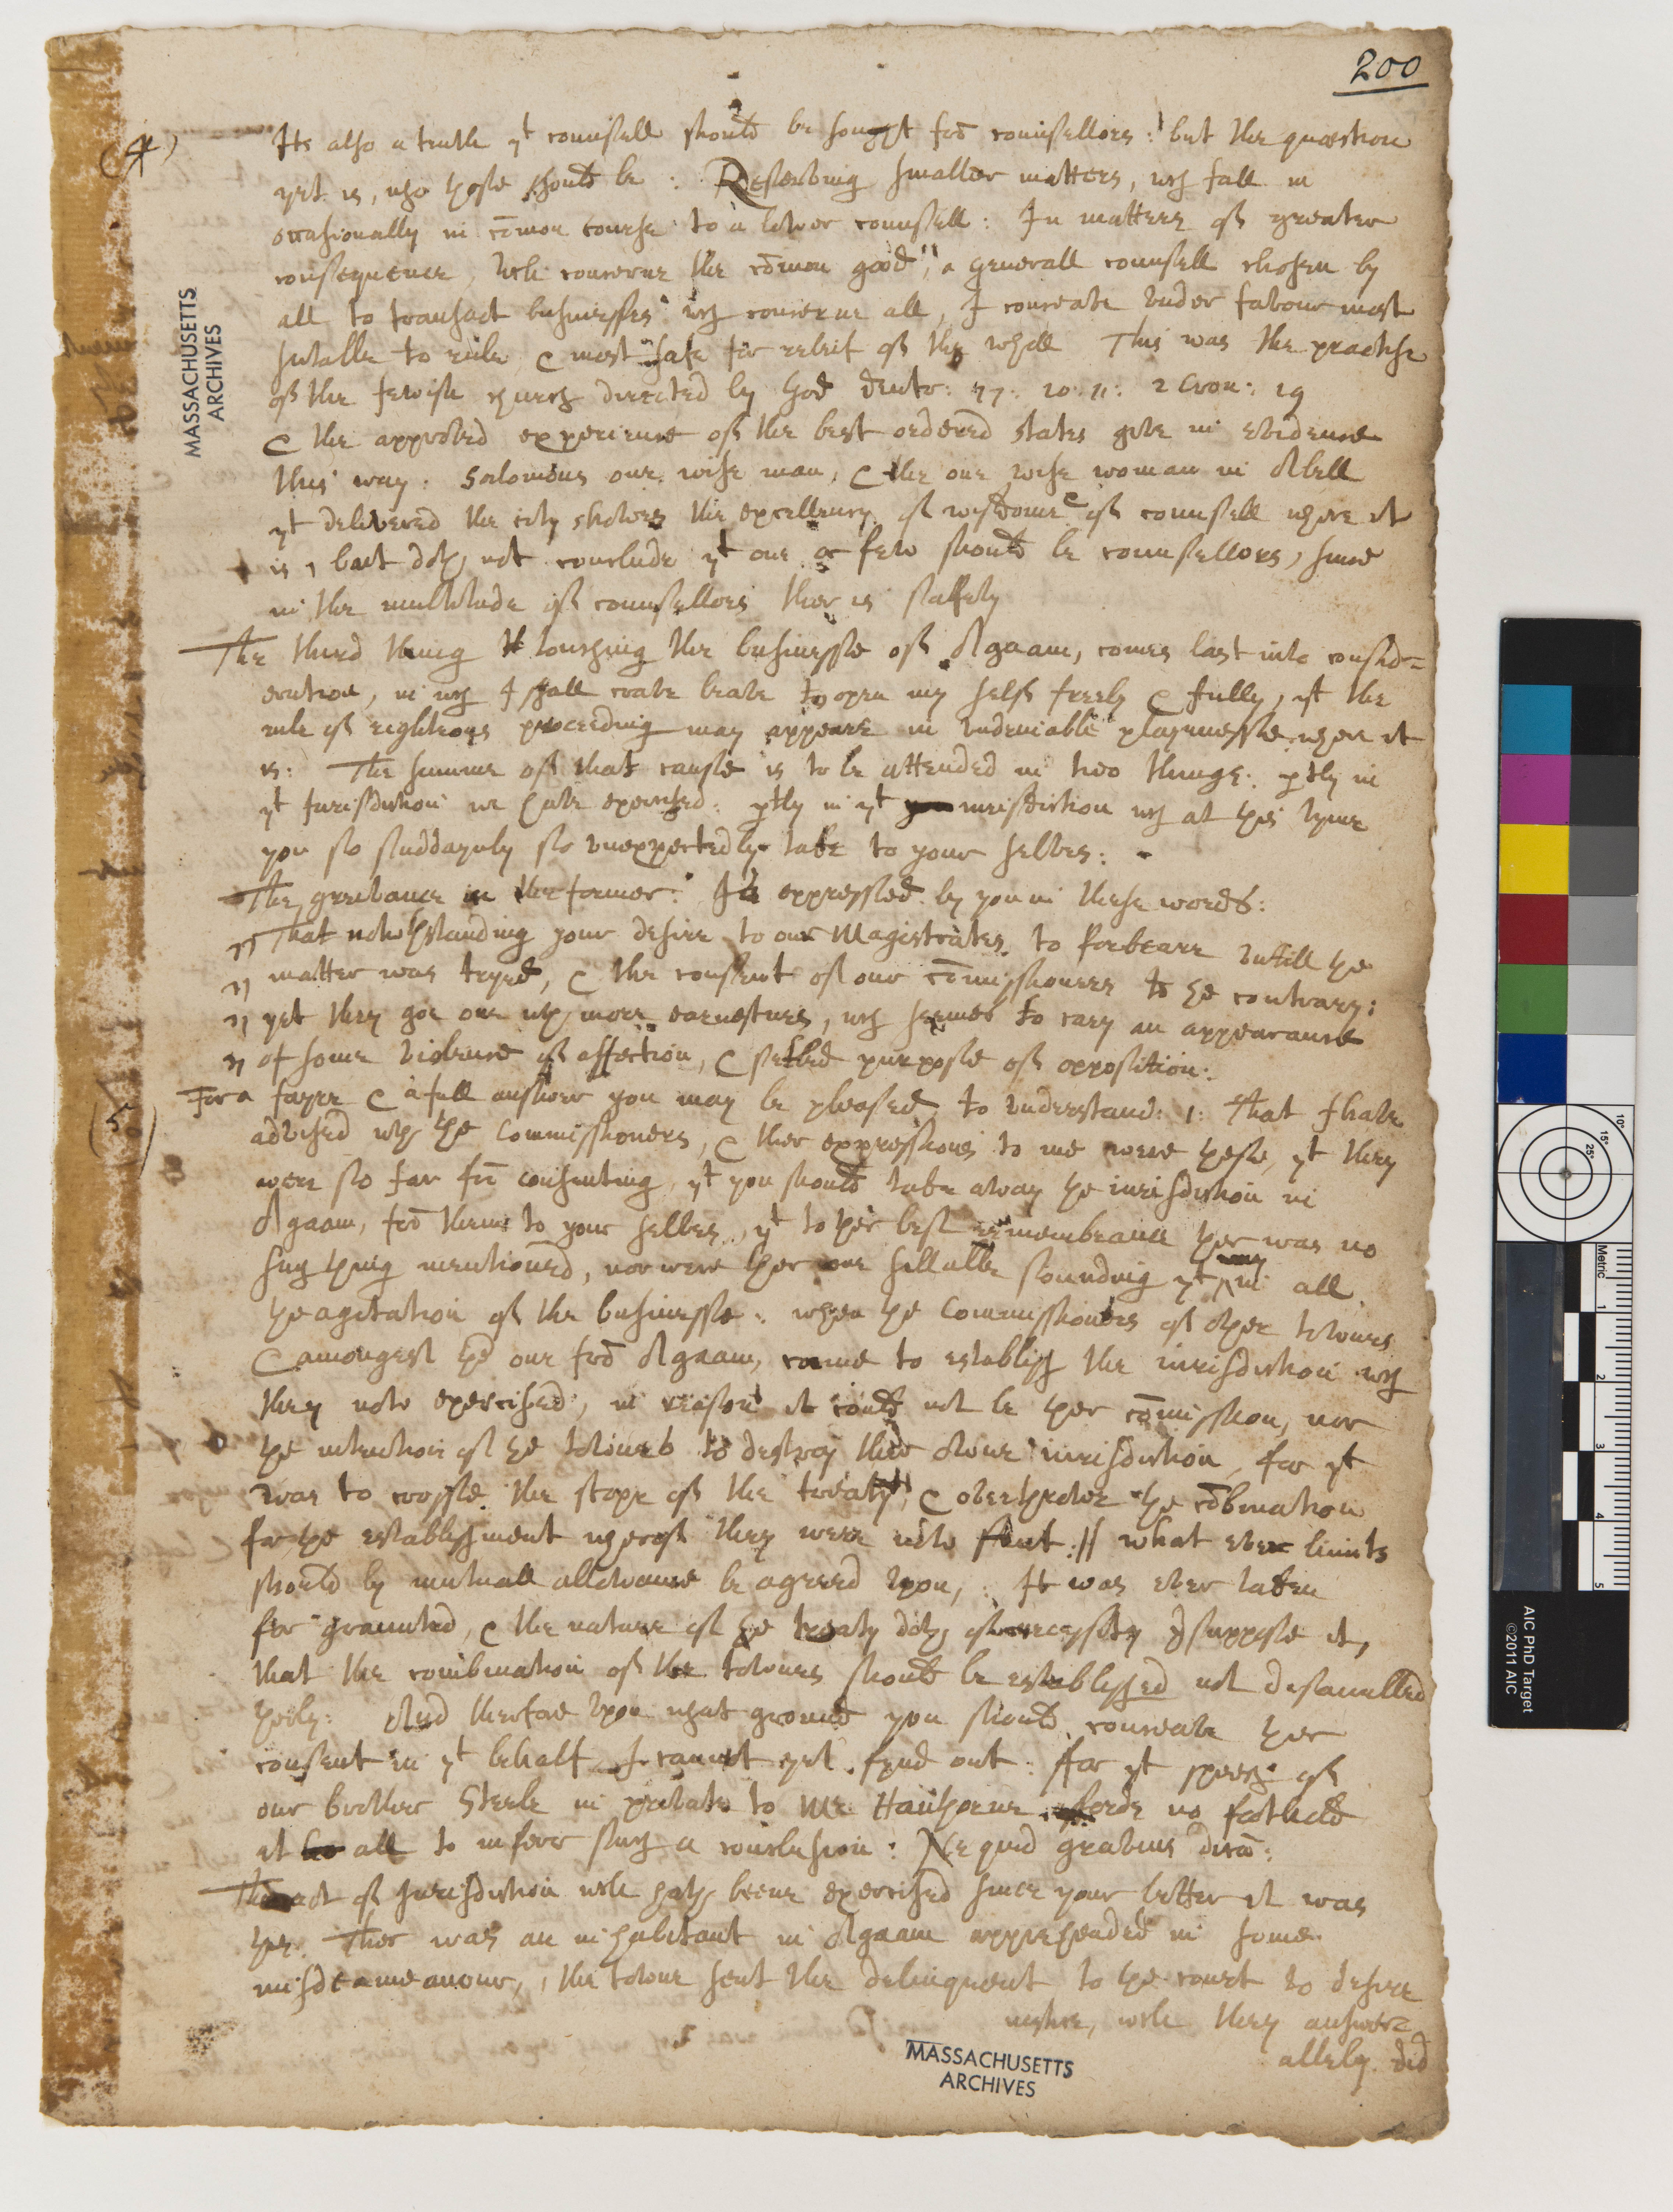 200
(4) Its also a truth yt counsell should be sought frō counsellors: but the quæstion
yet is, who those should be: Reserving smaller matters, wch fall in
occasionally in cōmon course to a lower counsell: In matters of greater
consequence, wch concerne the cōmon good, a generall counsell chosen by
all to transact businesses wch concerne all, I conceave under favour most
sutable to rule & most safe for releif of the wholl This was the practise
of the Jewish church directed by God Deutr: 17: 10: 11: 2 Cron: 19
& the approved experience of the best ordered states give in evidence
this way. Salomons one wise man, & the one wise woman in Abell
yt delivered the city shewes the excellency of wisdome & of counsell where it
is, but doth not conclude yt one or few should be counsellors, since
in the multitude of counsellors ther is saffety
The third thing touching the businesse of Agaam, comes last into consid=
eration, in wch I shall crave leave to open my self freely & fully, yt the
rule of righteous proceeding may appeare in undeniable playnnesse where it
is: The summe of that cause is to be attended in two things: ptly in
yt Jurisdiction we have exercised: ptly in yt iurisdiction wch at this tyme
you so suddaynly so unexpectedly take to your selves:
The greivance in the former Is expressed by you in these words:
" That notwthstanding your desire to our Magistrates to forbeare untill the
" matter was tryed, & the consent of our cōmissioners to the contrary;
" yet they goe one wth more earnestnes, wch seemes to cary an appearance
" of some violence of affection, & setled purpose of opposition:
(5) For a fayre & a full answer you may be pleased to understand: 1: That I have
advised wth the Commissioners, & ther expressions to me were these, yt they
were so far frō consenting, yt you should take away the iurisdiction in
Agaam, frō them to your selves, yt to ther best remembrance ther was no
such thing mentioned, nor were ther one sillable sounding yt way in all
the agitation of the businesse: when the Commissioners of other townes
& amongest thē one frō Agaam, came to establish the iurisdiction wch
they now exercised; in reason it could not be ther cōmission, nor
the intention of the townes to destroy ther owne iurisdiction, for yt
was to crosse the scope of the treaty, & overthrow the cōbination
for the establishment wherof they were now sent: // what ever limits
should by mutuall allowance be agreed upon, It was ever taken
for graunted, & the nature of the treaty doth of necessity suppose it,
that the combination of the townes should be established not disanulled
therby: And therfore upon what ground you should conceave ther
consent in yt behalf I cannot yet fynd out: For yt speech of
our brother Steele in private to Mr Hauthorne, afords no foothold
at all to infer such a conclusion: Ne quid gravius dicā:
The act of Jurisdiction wch hath beene exercised since your letter it was
this. Ther was an inhabitant in Agaam apprehended in some
misdeameanour, the towne sent the delinquent to the court to desire
iustice, wch they answer=
ablely did
MASSACHUSETTS
ARCHIVES
MASSACHUSETTS
ARCHIVES
10°
15°
25°
Metric
1
2
3
4
5
AIC PhD Target
©2011 AIC